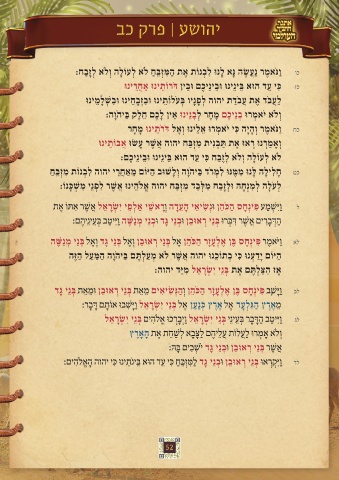 יהושע | פרק כב
כו וַנֹּאמֶר נַעֲשֶׂה נָּא לָנוּ לִבְנוֹת אֶת הַמִּזְבֵּחַ לֹא לְעוֹלָה וְלֹא לְזָבַח:
כז כִּי עֵד הוּא בֵּינֵינוּ וּבֵינֵיכֶם וּבֵין דֹּרוֹתֵינוּ אַחֲרֵינוּ
לַעֲבֹד אֶת עֲבֹדַת יהוה לְפָנָיו בְּעֹלוֹתֵינוּ וּבִזְבָחֵינוּ וּבִשְׁלָמֵינוּ
וְלֹא יֹאמְרוּ בְנֵיכֶם מָחָר לְבָנֵינוּ אֵין לָכֶם חֵלֶק בַּיהוָה:
כח וַנֹּאמֶר וְהָיָה כִּי יֹאמְרוּ אֵלֵינוּ וְאֶל דֹּרֹתֵינוּ מָחָר
וְאָמַרְנוּ רְאוּ אֶת תַּבְנִית מִזְבַּח יהוה אֲשֶׁר עָשׂוּ אֲבוֹתֵינוּ
לֹא לְעוֹלָה וְלֹא לְזֶבַח כִּי עֵד הוּא בֵּינֵינוּ וּבֵינֵיכֶם:
כט חָלִילָה לָּנוּ מִמֶּנּוּ לִמְרֹד בַּיהוָה וְלָשׁוּב הַיּוֹם מֵאַחֲרֵי יהוה לִבְנוֹת מִזְבֵּחַ
לְעֹלָה לְמִנְחָה וּלְזָבַח מִלְּבַד מִזְבַּח יהוה אֱלֹהֵינוּ אֲשֶׁר לִפְנֵי מִשְׁכָּנוֹ:
ל וַיִּשְׁמַע פִּינְחָס הַכֹּהֵן וּנְשִׂיאֵי הָעֵדָה וְרָאשֵׁי אַלְפֵי יִשְׂרָאֵל אֲשֶׁר אִתּוֹ אֶת
הַדְּבָרִים אֲשֶׁר דִּבְּרוּ בְּנֵי רְאוּבֵן וּבְנֵי גָד וּבְנֵי מְנַשֶּׁה וַיִּיטַב בְּעֵינֵיהֶם:
לא וַיֹּאמֶר פִּינְחָס בֶּן אֶלְעָזָר הַכֹּהֵן אֶל בְּנֵי רְאוּבֵן וְאֶל בְּנֵי גָד וְאֶל בְּנֵי מְנַשֶּׁה
הַיּוֹם יָדַעְנוּ כִּי בְתוֹכֵנוּ יהוה אֲשֶׁר לֹא מְעַלְתֶּם בַּיהוָה הַמַּעַל הַזֶּה
אָז הִצַּלְתֶּם אֶת בְּנֵי יִשְׂרָאֵל מִיַּד יהוה:
לב וַיָּשָׁב פִּינְחָס בֶּן אֶלְעָזָר הַכֹּהֵן וְהַנְּשִׂיאִים מֵאֵת בְּנֵי רְאוּבֵן וּמֵאֵת בְּנֵי גָד
מֵאֶרֶץ הַגִּלְעָד אֶל אֶרֶץ כְּנַעַן אֶל בְּנֵי יִשְׂרָאֵל וַיָּשִׁבוּ אוֹתָם דָּבָר:
לג וַיִּיטַב הַדָּבָר בְּעֵינֵי בְּנֵי יִשְׂרָאֵל וַיְבָרְכוּ אֱלֹהִים בְּנֵי יִשְׂרָאֵל
וְלֹא אָמְרוּ לַעֲלוֹת עֲלֵיהֶם לַצָּבָא לְשַׁחֵת אֶת הָאָרֶץ
אֲשֶׁר בְּנֵי רְאוּבֵן וּבְנֵי גָד יֹשְׁבִים בָּהּ:
לד וַיִּקְרְאוּ בְּנֵי רְאוּבֵן וּבְנֵי גָד לַמִּזְבֵּחַ כִּי עֵד הוּא בֵּינֹתֵינוּ כִּי יהוה הָאֱלֹהִים:
52